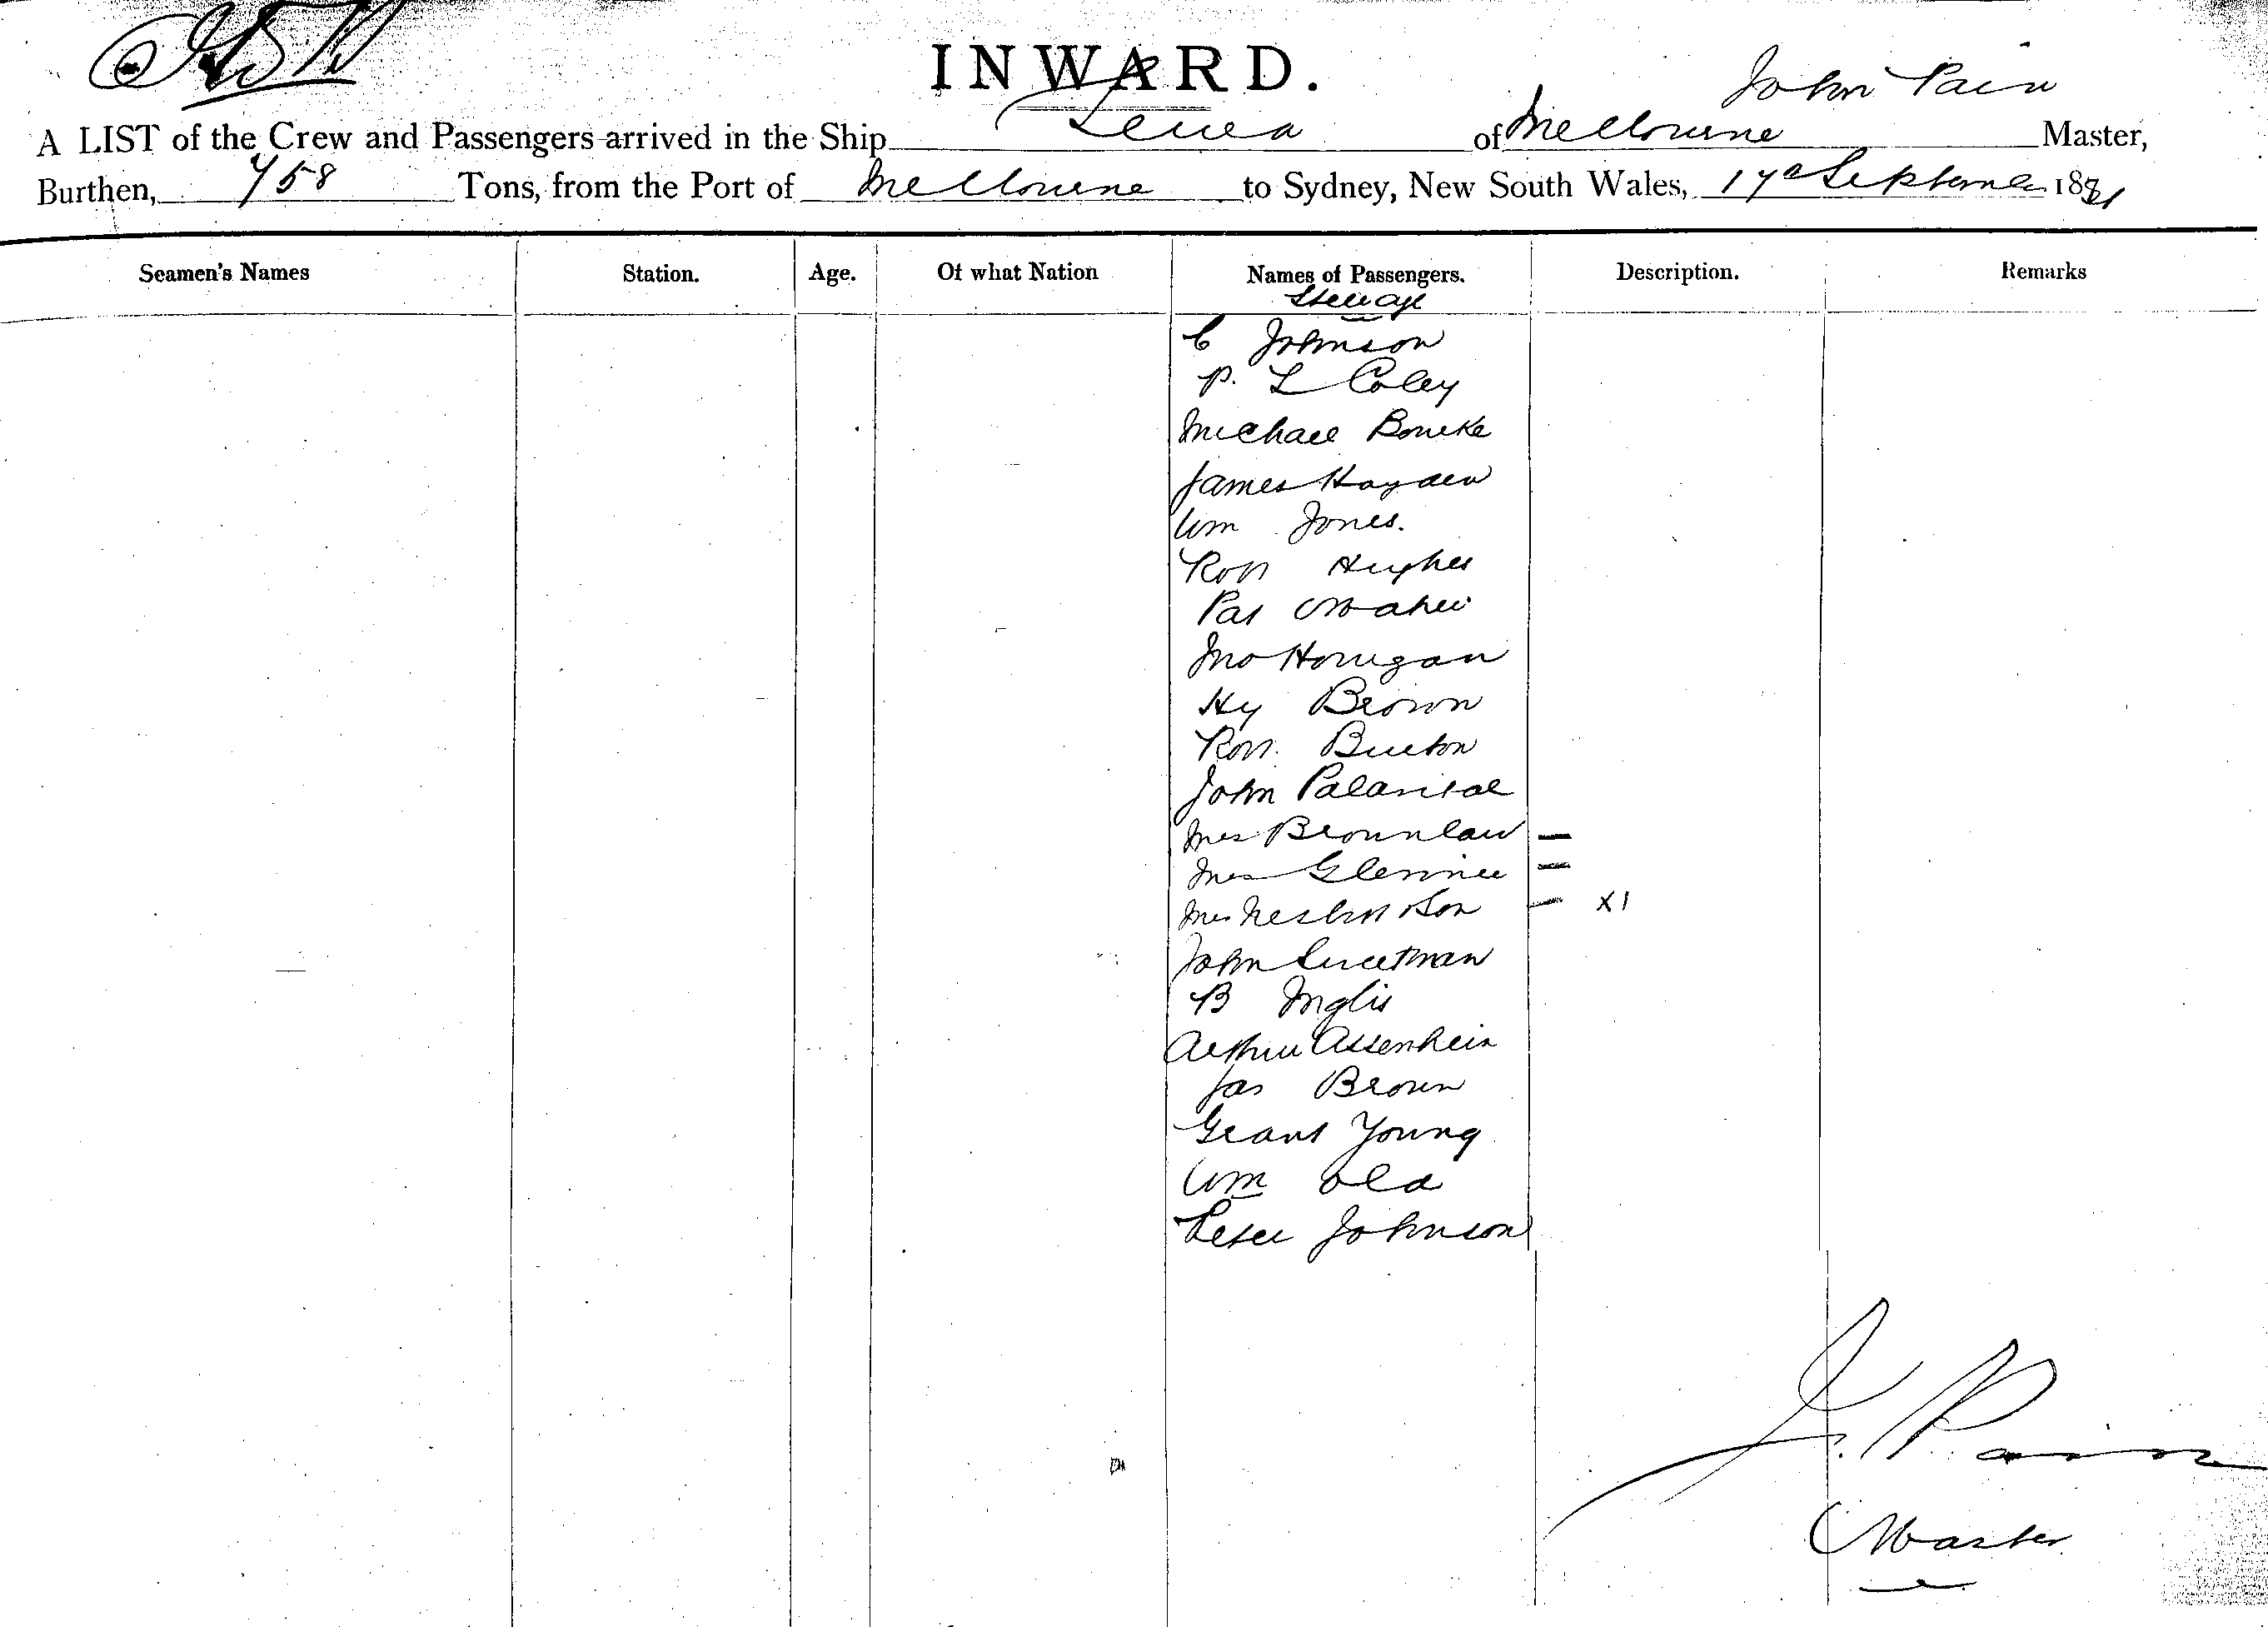 INWARD.
John Pain
A LIST of the Crew and Passengers arrived in the Ship of Melbourne Master,
Burthen, 758 Tons, from the Port of Melbourne to Sydney, New South Wales, 17th September 1881
Seamen's Names Station. Age. Of what Nation Names of Passengers. Description. Remarks
Steerage
C Johnson
P. L Coley
Michael Bourke
James Hayden
Wm Jones.
Robt Hughes
Pat Maher
Jno Horrigan
Hy Brown
Robt Burton
John
Mrs Brownlaw —
Mrs Glennie —
Mrs Nesbitt Son — X1
John Sweetman
B Inglis
Arthur Assenheim
Jas Brown
Grant Young
Wm Old
Peter Johnson
J. Pain
Master